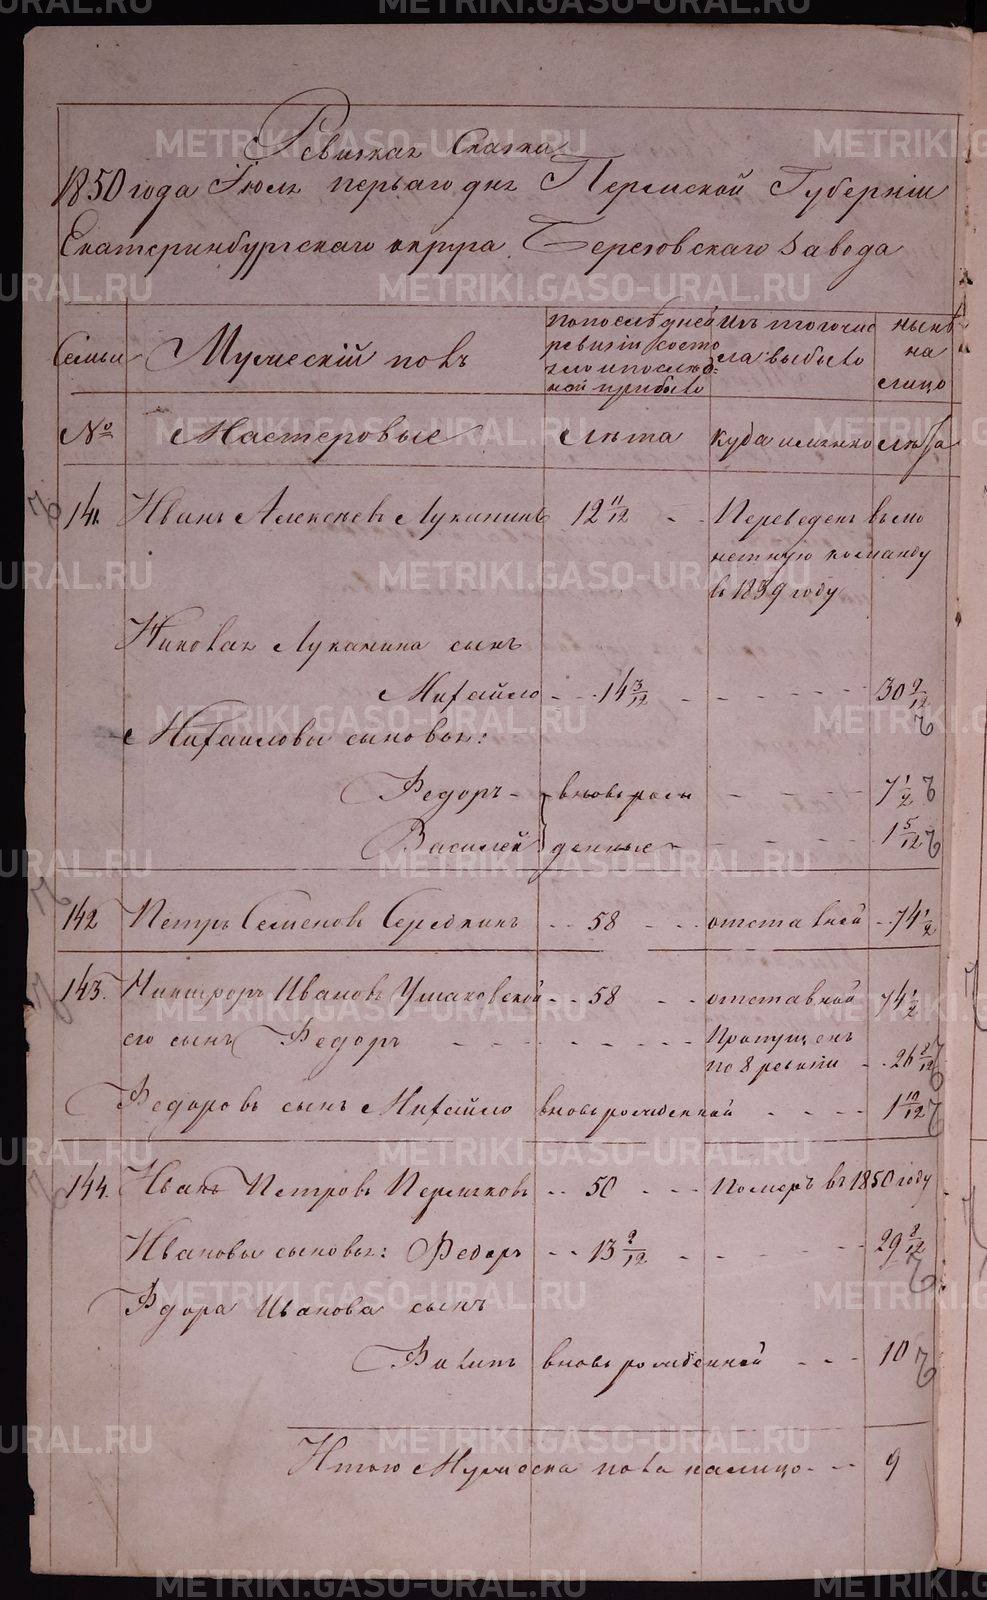 Ревизкая Сказка
1850 года Июля перваго дня Пермской Губерніи
Екатеринбургскаго округа Березовскаго Завода
Семьи
Мужескій полъ
По последней
ревизіи состо
яло и послѣд
ней прибыло
Изъ того чис
ла выбыло
нынѣ
на
лицо
№
Мастеровые
Лѣта
куда именно
лѣта
141. Иванъ Алексѣевъ Луканинъ 12 11/12 Переведенъ в мо
нетную команду
в 1839 году
Якова Луканина сынъ
Михайло 14 3/12 30 9/12
Михаиловы сыновья:
Федоръ вновь рож 7 1/2
Василей денные 1 5/12
142 Петръ Семеновъ Середкинъ 58 отставной 74 1/2
143. Никифоръ Ивановъ Ушаковской 58 отставной 74 1/2
его сынъ Федоръ Пропущенъ
по 8 ревизіи 26 8/12
Федоровъ сынъ Михайло вновь рожденной 1 10/12
144. Иванъ Петровъ 50 Померъ в 1850 году
Ивановы сыновья: Федоръ 13 2/12 29 8/12
Фдора Иванова сынъ
вновь рожденной 10
Итого Мужеска пола налицо 9
METRIKI.GASO-URAL.RU